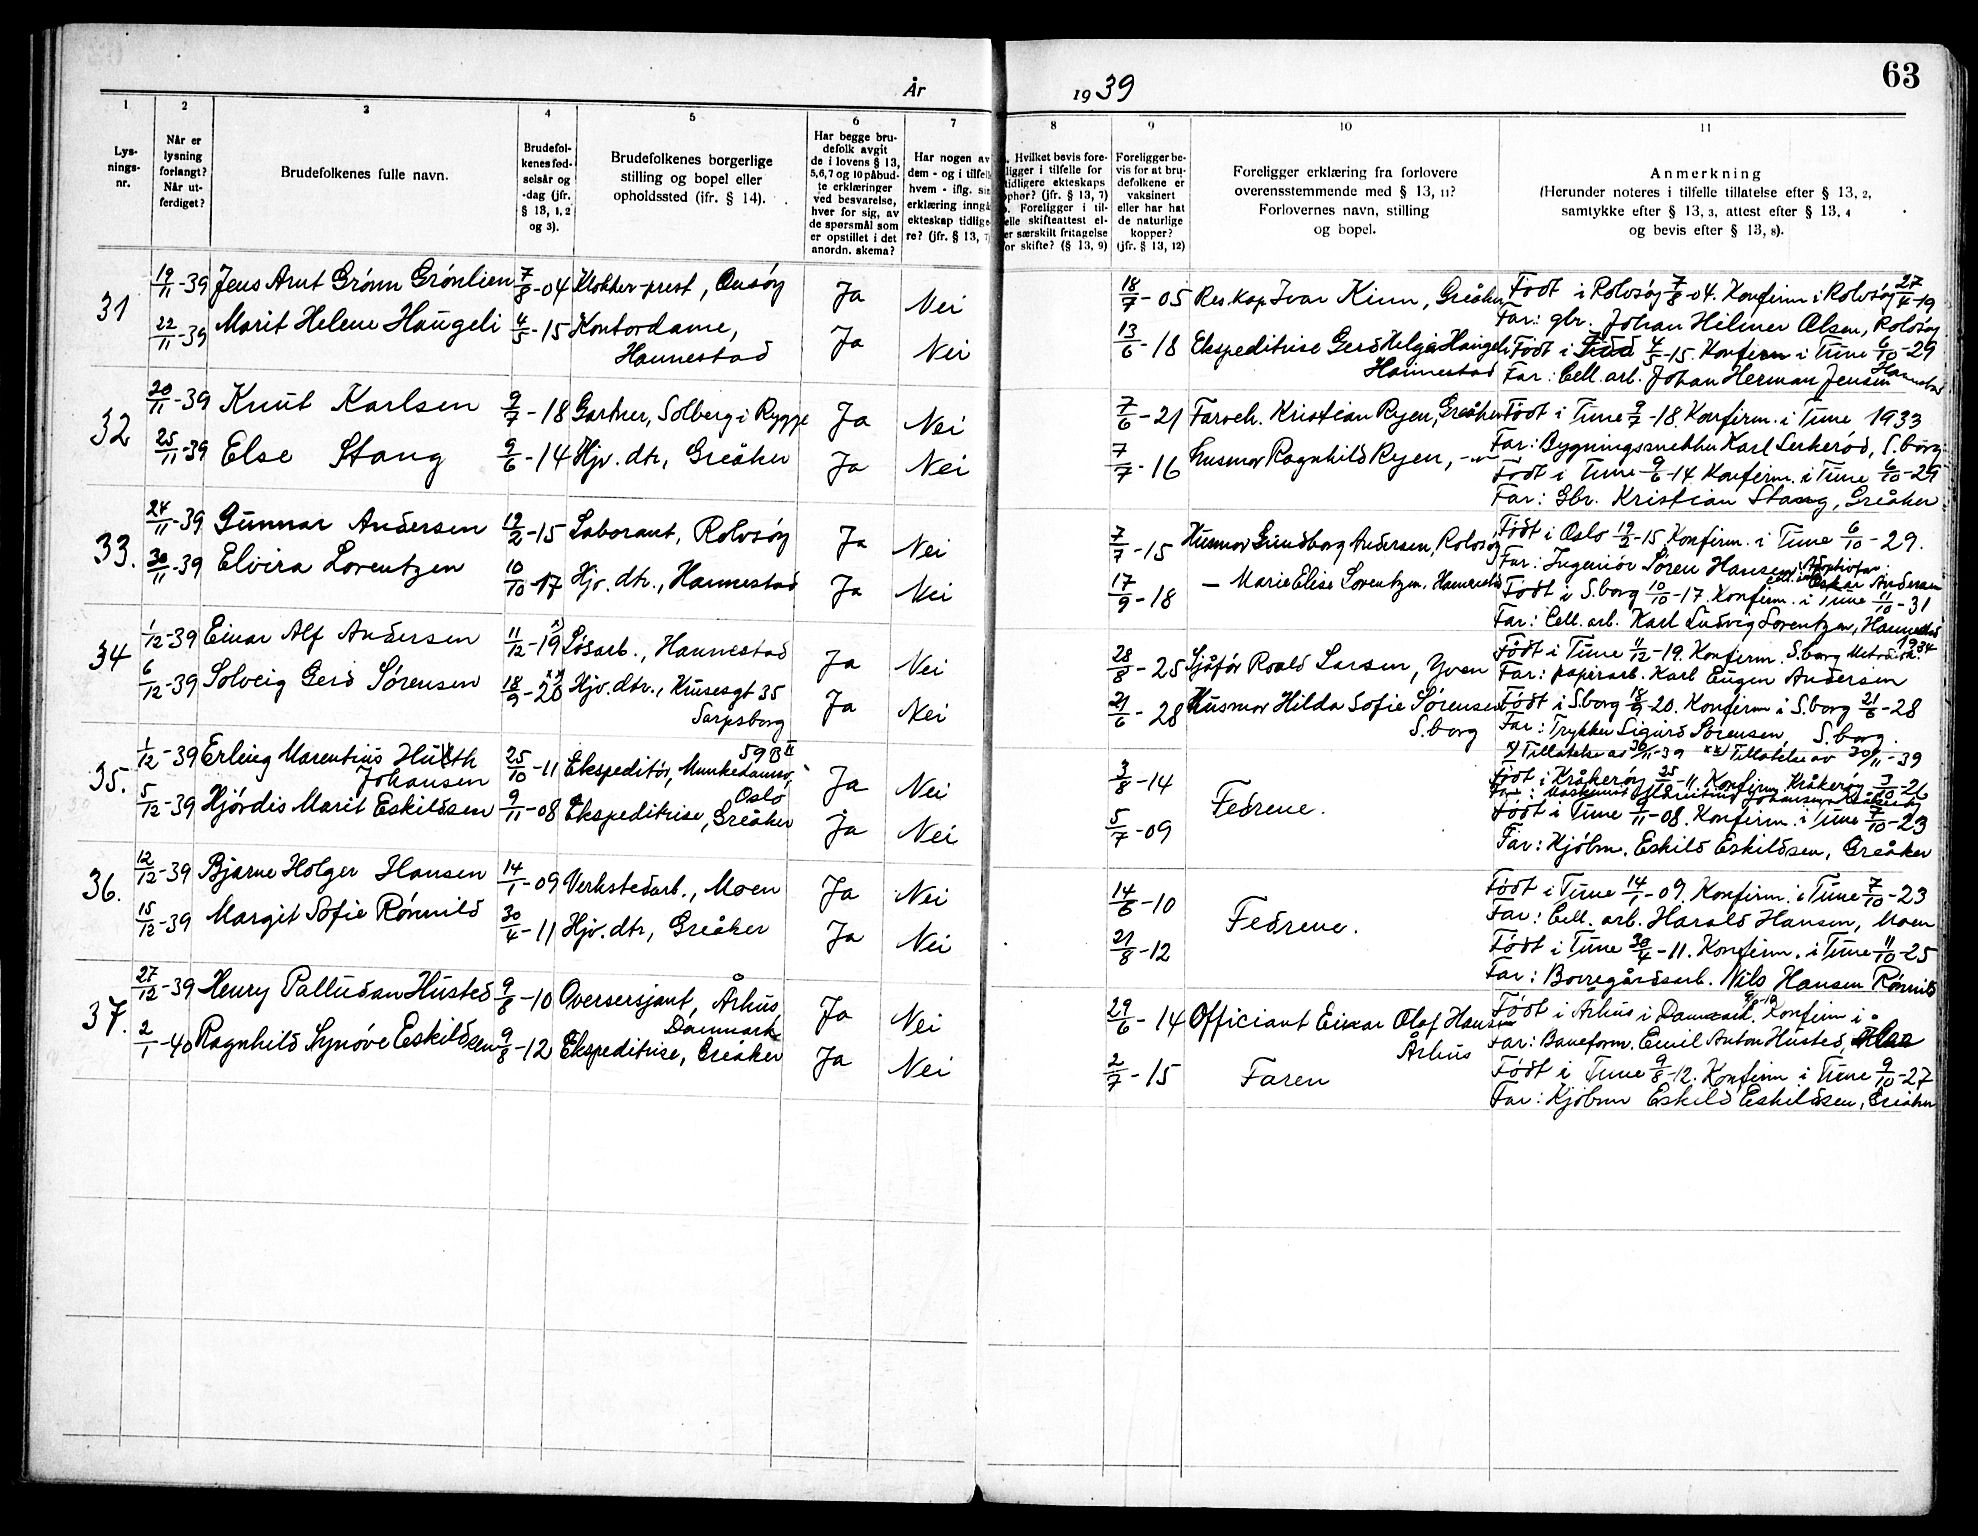 63
År 1939
1 2 3 4 5 6 7 8 9 10 11
Lysnings-nr.
Når er lysning forlangt? Når utferdiget?
Brudefolkenes fulle navn.
Brudefolkenes fødselsår og -dag (jfr. § 13, 1, 2 og 3).
Brudefolkenes borgerlige stilling og bopel eller opholdssted (ifr. § 14).
Har begge brudefolk avgit de i lovens § 13, 5, 6, 7 og 10 påbudte erklæringer ved besvarelse, hver for sig, av de spørsmål som er opstillet i det anordn. skema?
Har nogen av dem - og i tilfelle hvem - iflg. sin erklæring inngå ekteskap tidligere? (jfr. § 13,
Hvilket bevis foreligger i tilfelle for tidligere ekteskaps ophør? (jfr. § 13, 7)
Foreligger i tilfelle skifteattest eller særskilt fritagelse for skifte? (§ 13, 9)
Foreligger bevis for at brudefolkene er vaksinert eller har hat de naturlige kopper? (jfr. § 13, 12)
Foreligger erklæring fra forlovere overensstemmende med § 13, 11? Forlovernes navn, stilling og bopel.
Anmerkning (Herunder noteres i tilfelle tillatelse efter § 13, 2, samtykke efter § 13, 3, attest efter § 13, 4 og bevis efter § 13, 8).
31 19/11-39 Jens Arnt Grönn Grönlien 7/8-04 Klokker-prest, Onsöy Ja Nei 18/7-05 Res.kap Ivar Kinn, Greåker Födt i Rolvsöy 7/8-04. Konfirm i Rolvsöy 27/4-19
Far: gbr. Johan Hilmer Olsen, Rolvsöy
22/11-39 Marit Helene Haugeli 4/5-15 Kontordame, Hannestad Ja Nei 13/6-18 Ekspeditrise Gerd Helga Haugeli Hannestad Födt i 4/5-15. Konfirm i Tune 6/10-29
Far: Cell.arb. Johan Herman Jensen Hannestad
32 20/11-39 Knut Karlsen 9/7-18 Gartner, Solberg i Rygge Ja Nei 7/6-21 Farveh. Kristian Ryen, Greåker Födt i Tune 9/7-18. Konfirm. i Tune 1933
Far: Bygningssnekker Karl S.borg
25/11-39 Else Stang 9/6-14 Hjv. dtr, Greåker Ja Nei 7/7-16 Husmor Ragnhild Ryen, -"- Födt i Tune 9/6-14 Konfirm. i Tune 6/10-29
Far: Gbr. Kristian Stang, Greåker
33. 24/11-39 Gunnar Andersen 19/2-15 Laborant, Rolvsöy Ja Nei 7/7-15 Husmor Gundborg Andersen, Rolvsöy Födt i Oslo 19/2-15 Konfirm. i Tune 6/10-29.
Far: Ingeniör Sören Hansen, Adoptivfar: Oskar Andersen
30/11-39 Elvira Lorentzen 10/10-17 Hjv. dtr., Hannestad Ja Nei 17/9-18 — Marie Elise Lorentzen. Hannestad Födt i S.borg 10/10-17. Konfirm. i Tune 11/10-31
Far: Cell. arb. Karl Ludvig Lorentzen, Hannestad
34 1/12-39 Einar Alf Andersen 11/12-19 x) Lösarb., Hannestad Ja Nei 28/8-25 Sjåför Roald Larsen, Yven Födt i Tune 11/12-19. Konfirm. S.borg Metodisk. 1934
Far: papirarb. Karl Eugen Andersen
6/12-39 Solveig Gerd Sörensen 18/9-20 xx) Hjv. dtr., Krusesgt 35 Sarpsborg Ja Nei 21/6-28 Husmor Hilda Sofie Sörensen S.borg Födt i S.borg 18/9-20. Konfirm i S.borg 21/6-28
Far: Trykker Sigurd Sörensen, S.borg.
x) Tillatelse av 30/11-39 xx) Tillatelse av 30/11-39
35. 1/12-39 Erling Marentius Huth Johansen 25/10-11 Ekspeditör, Munkedamsv. 59 B II Oslo Ja Nei 3/8-14 Fedrene. Födt i Kråkeröy 25/10-11 Konfirm Kråkeröy 3/10-26
Far: Maskinist Johansen Kråkeröy
5/12-39 Hjördis Marit Eskildsen 9/11-08 Ekspeditrise, Greåker Ja Nei 5/7-09 Födt i Tune 9/11-08. Konfirm. i Tune 7/10-23
Far: Kjöbm. Eskild Eskildsen, Greåker
36. 12/12-39 Bjarne Holger Hansen 14/1-09 Verkstedarb., Moen Ja Nei 14/6-10 Fedrene. Födt i Tune 14/1-09. Konfirm. i Tune 7/10-23
Far: Cell. arb. Harald Hansen, Moen
15/12-39 Margit Sofie Rönnild 30/4-11 Hjv. dtr, Greåker Ja Nei 21/8-12 Födt i Tune 30/4-11. Konfirm. i Tune 11/10-25
Far: Borregårdsarb. Nils Hansen Rönnild
37. 27/12-39 Henry Palludan Husted 9/8-10 Oversersjant, Århus, Danmark Ja Nei 29/6-14 Officiant Einar Olaf Hansen Århus Födt i Århus i Danmark. 9/8-10 Konfirm i
Far: Baneform. Emil Anton Husted,
2/1-40 Ragnhild Synöve Eskildsen 9/8-12 Ekspeditrise, Greåker Ja Nei 2/7-15 Faren Födt i Tune 9/8-12. Konfirm i Tune 9/10-27
Far: Kjöbm Eskild Eskildsen, Greåker